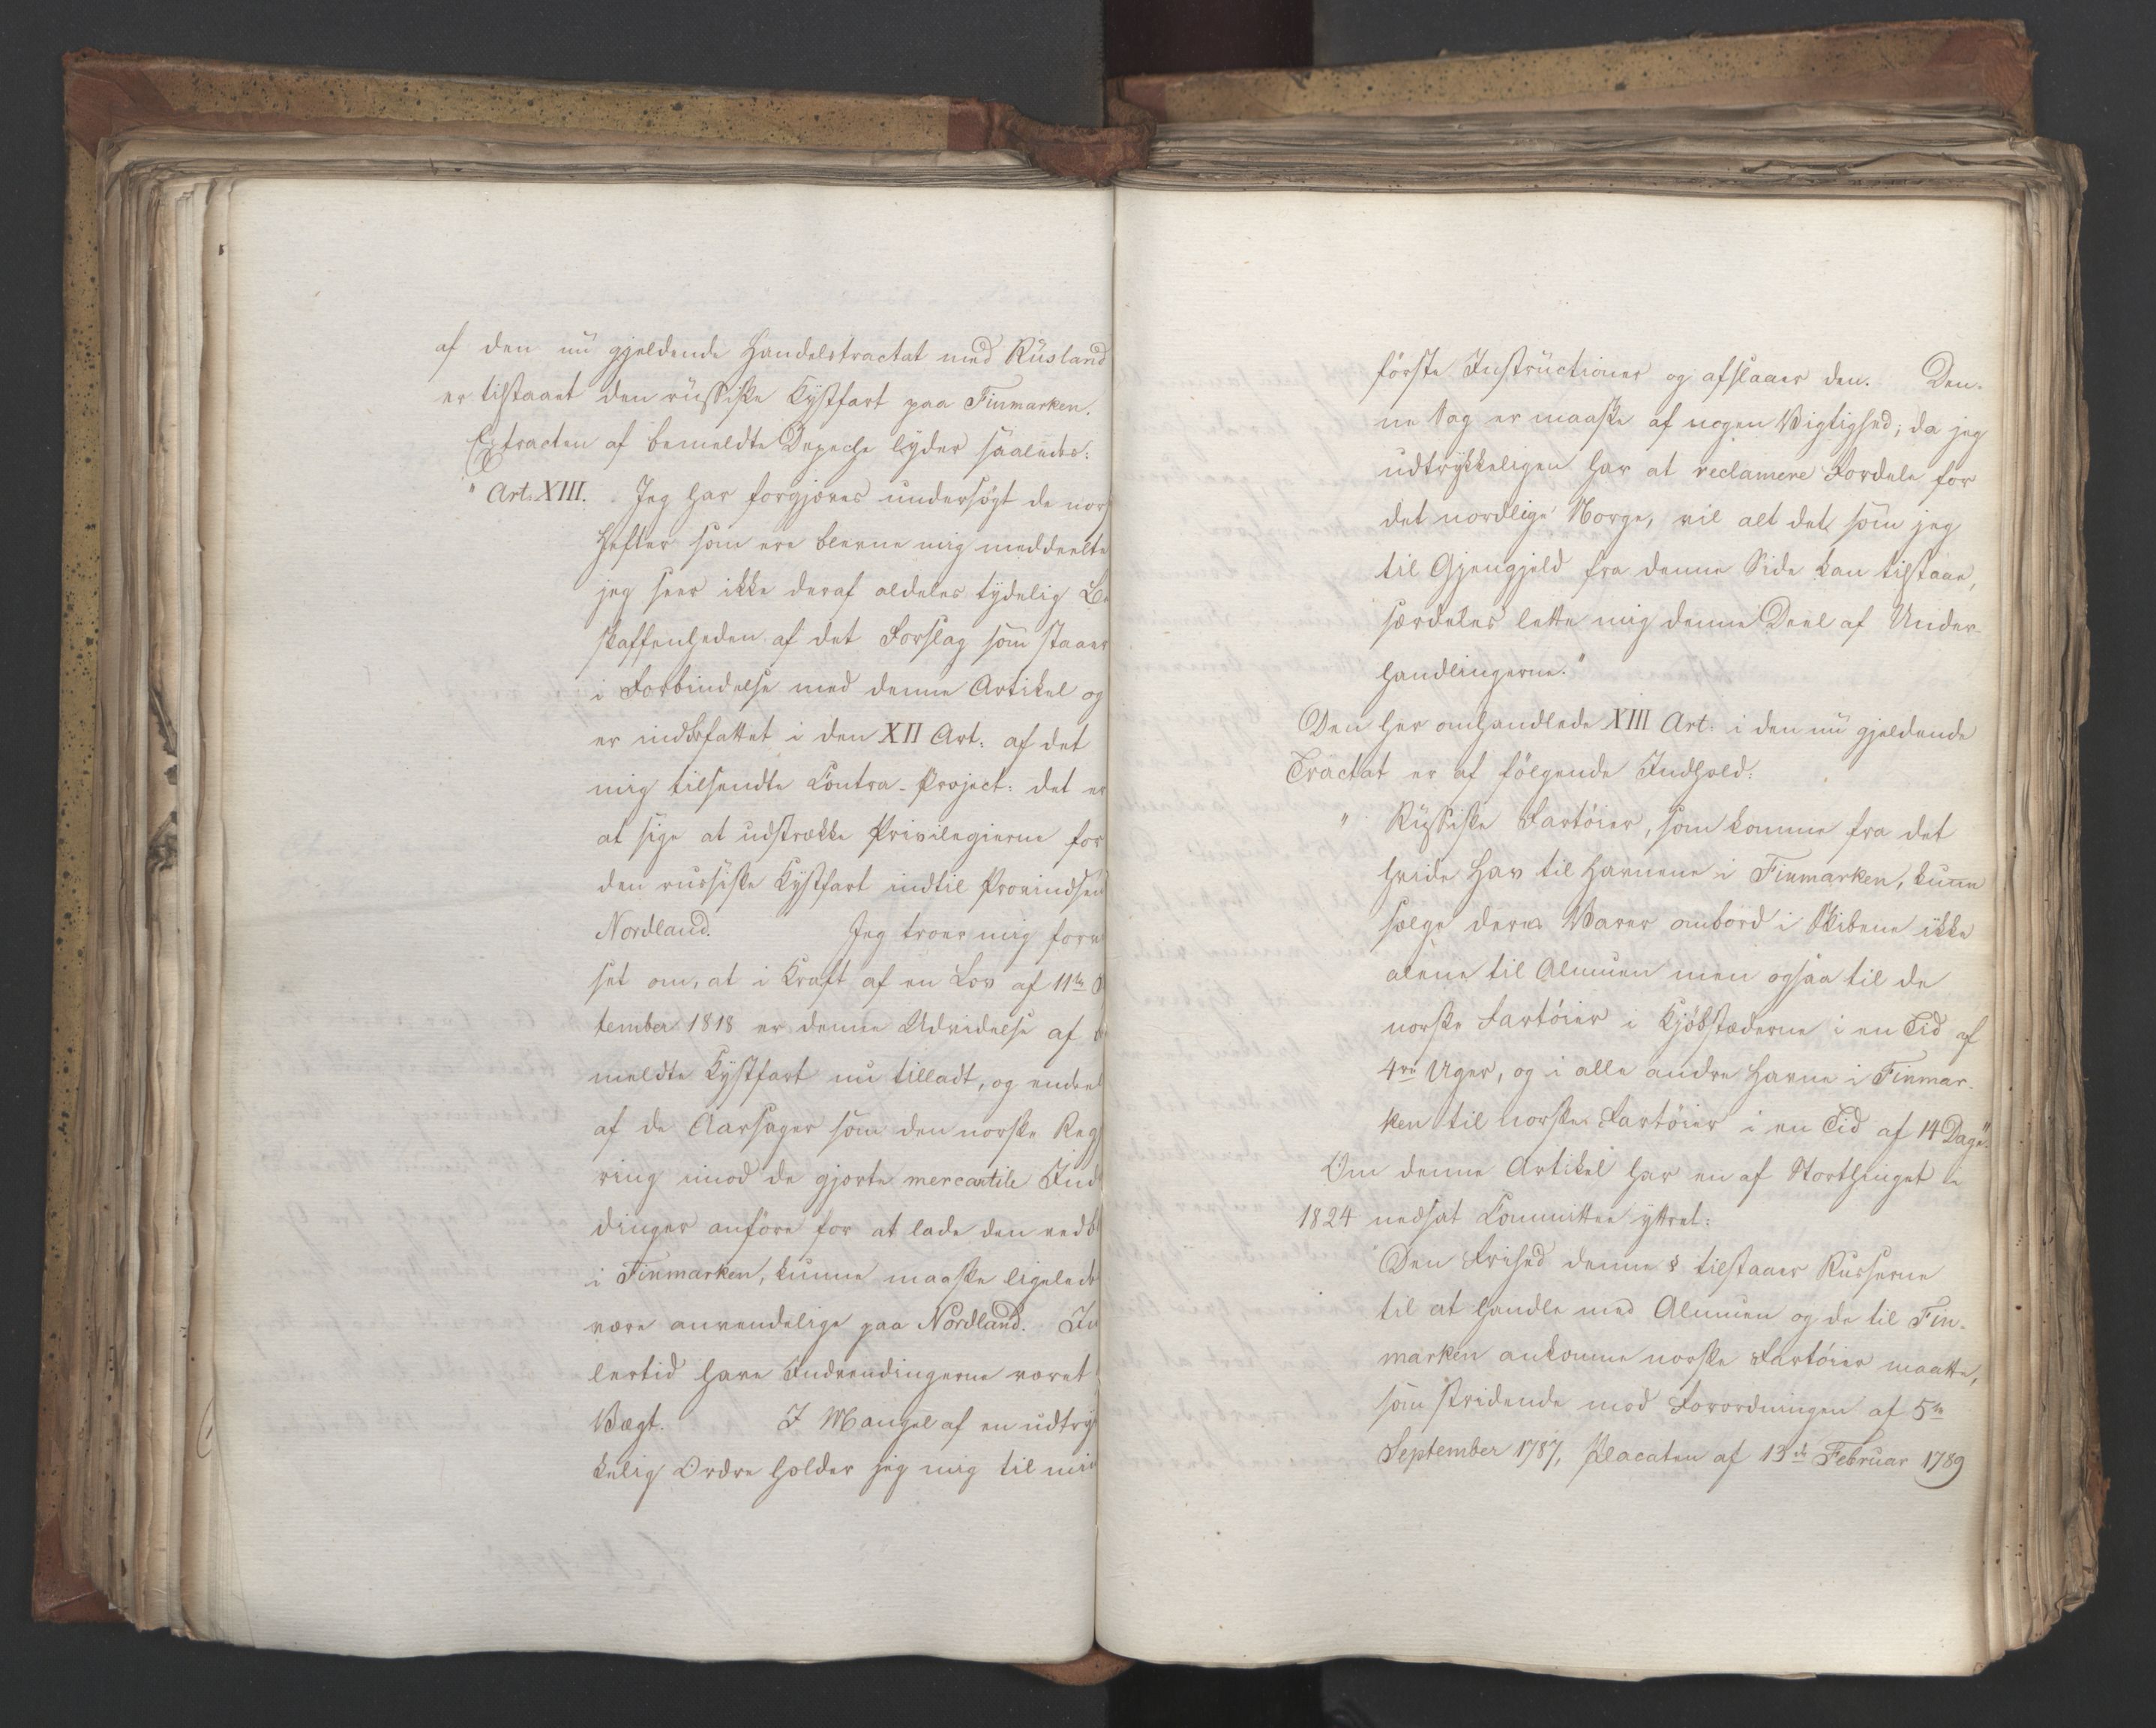 af den nu gjeldende Handelstractat med Rusland
er tilstaaet den russiske Kystfart paa Finmarken.
Extracten af bemeldte Depeche lyder saaledes:
"Art: XIII. Jeg har forgjæves undersøgt de nor
Hefter som ere blevne mig meddeelte
jeg seer ikke deraf aldeles tydelig Be
skaffenheden af det Forslag som staaer
i Forbindelse med denne Artikel og
er indbefattet i den XII Art: af det
mig tilsendte Contra-Project: det er
at sige at udstrække Privilegierne for
den russiske Kystfart indtil Provindsen
Nordland. Jeg troer mig forvis
set om, at i Kraft af en Lov af 11te
tember 1818 er denne Udvidelse af be
meldte Kystfart nu tilladt, og endeel
af de Aarsager som den norske Reg
ring imod de gjorte mercantile Ind
dinger anføre for at lade den vedb
i Finmarken, kunne maaske ligeledes
være anvendelige paa Nordland. Im
lertid have Indvendingerne været
Vægt. I Mangel af en udtryk
kelig Ordre holder jeg mig til mine
første Instructioner og afslaaer den. Den-
ne Sag er maaske af nogen Vigtighed; da jeg
udtrykkeligen har at reclamere Fordele for
det nordlige Norge, vil alt det som jeg
til Gjengjeld fra denne Side kan tilstaae,
særdeles lette mig denne Deel af Under-
handlingerne."
Den her omhandlede XIII Art: i den nu gjeldende
Tractat er af følgende Indhold:
" Russiske Fartøier, som komme fra det
hvide Hav til Havnene i Finmarken, kunne
sælge deres Varer ombord i Skibene ikke
alene til Almuen men ogsaa til de
norske Fartøier i Kjøbstæderne i en Tid af
4re Uger, og i alle andre Havne i Finmar-
ken til norske Fartøier i en Tid af 14 Dage"
Om denne Artikel har en af Storthinget
1824 nedsat Committee yttret:
Den Frihed denne § tilstaaer Russerne
til at handle med Almuen og de til Fin-
marken ankomne norske Fartøier maatte,
som stridende mod Forordningen af 5te
September 1787, Placaten af 13de Februar 1789